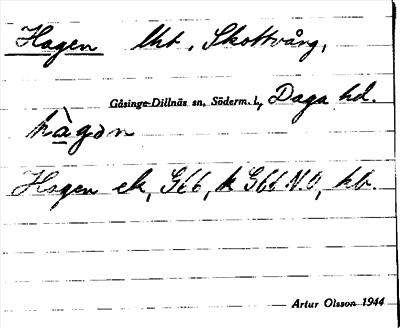 Hagen lht, Skottvång,
Gåsinge-Dillnäs sn, Söderm. l., Daga hd.
hàgən
Hagen ek, G66, k G66 N.O, hb.
Artur Olsson 1944